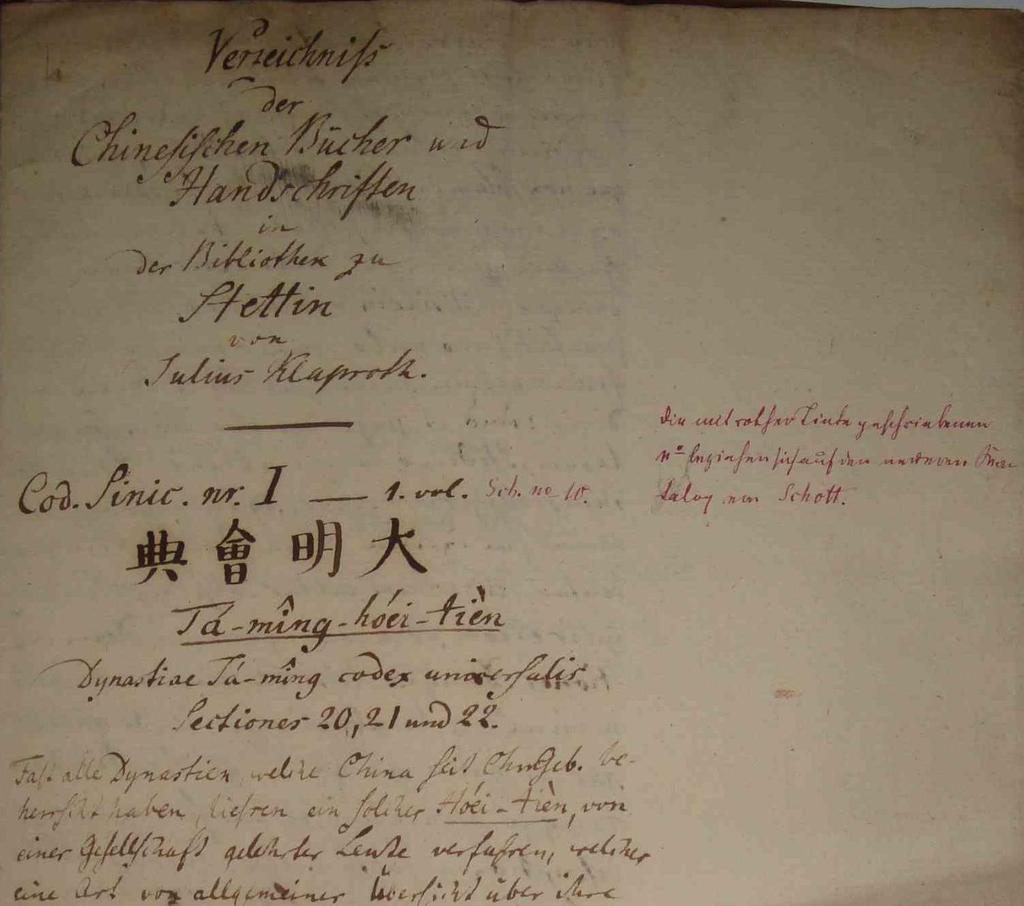 Verzeichniſs
der
Chineſiſchen Bücher und
Handschriften
in
der Bibliothek zu
Stettin
von
Julius Klaproth.
Cod. Sinic. nr. I — 1. vol. Sch. no 10.
典 會 明 大
Tá-mîng-hóei-tièn
Dynastiae Tá-mîng codex univerſalis
Sectiones 20, 21 und 22.
Faſt alle Dynastien, welche China ſeit Chr. Geb. be-
herrſcht haben, lieſsen ein ſolcher Hóei-tièn, von
einer Geſellſchaft gelehrter Leute verfaſsen, welcher
eine Art von allgemeiner Überſicht über ihre
die mit rother Tinte geſchriebenen
no beziehen ſich auf den neueren Ka-
talog von Schott.